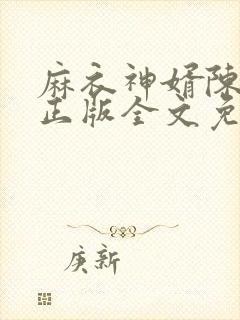 麻衣神婿陈
正版全文免
庚新